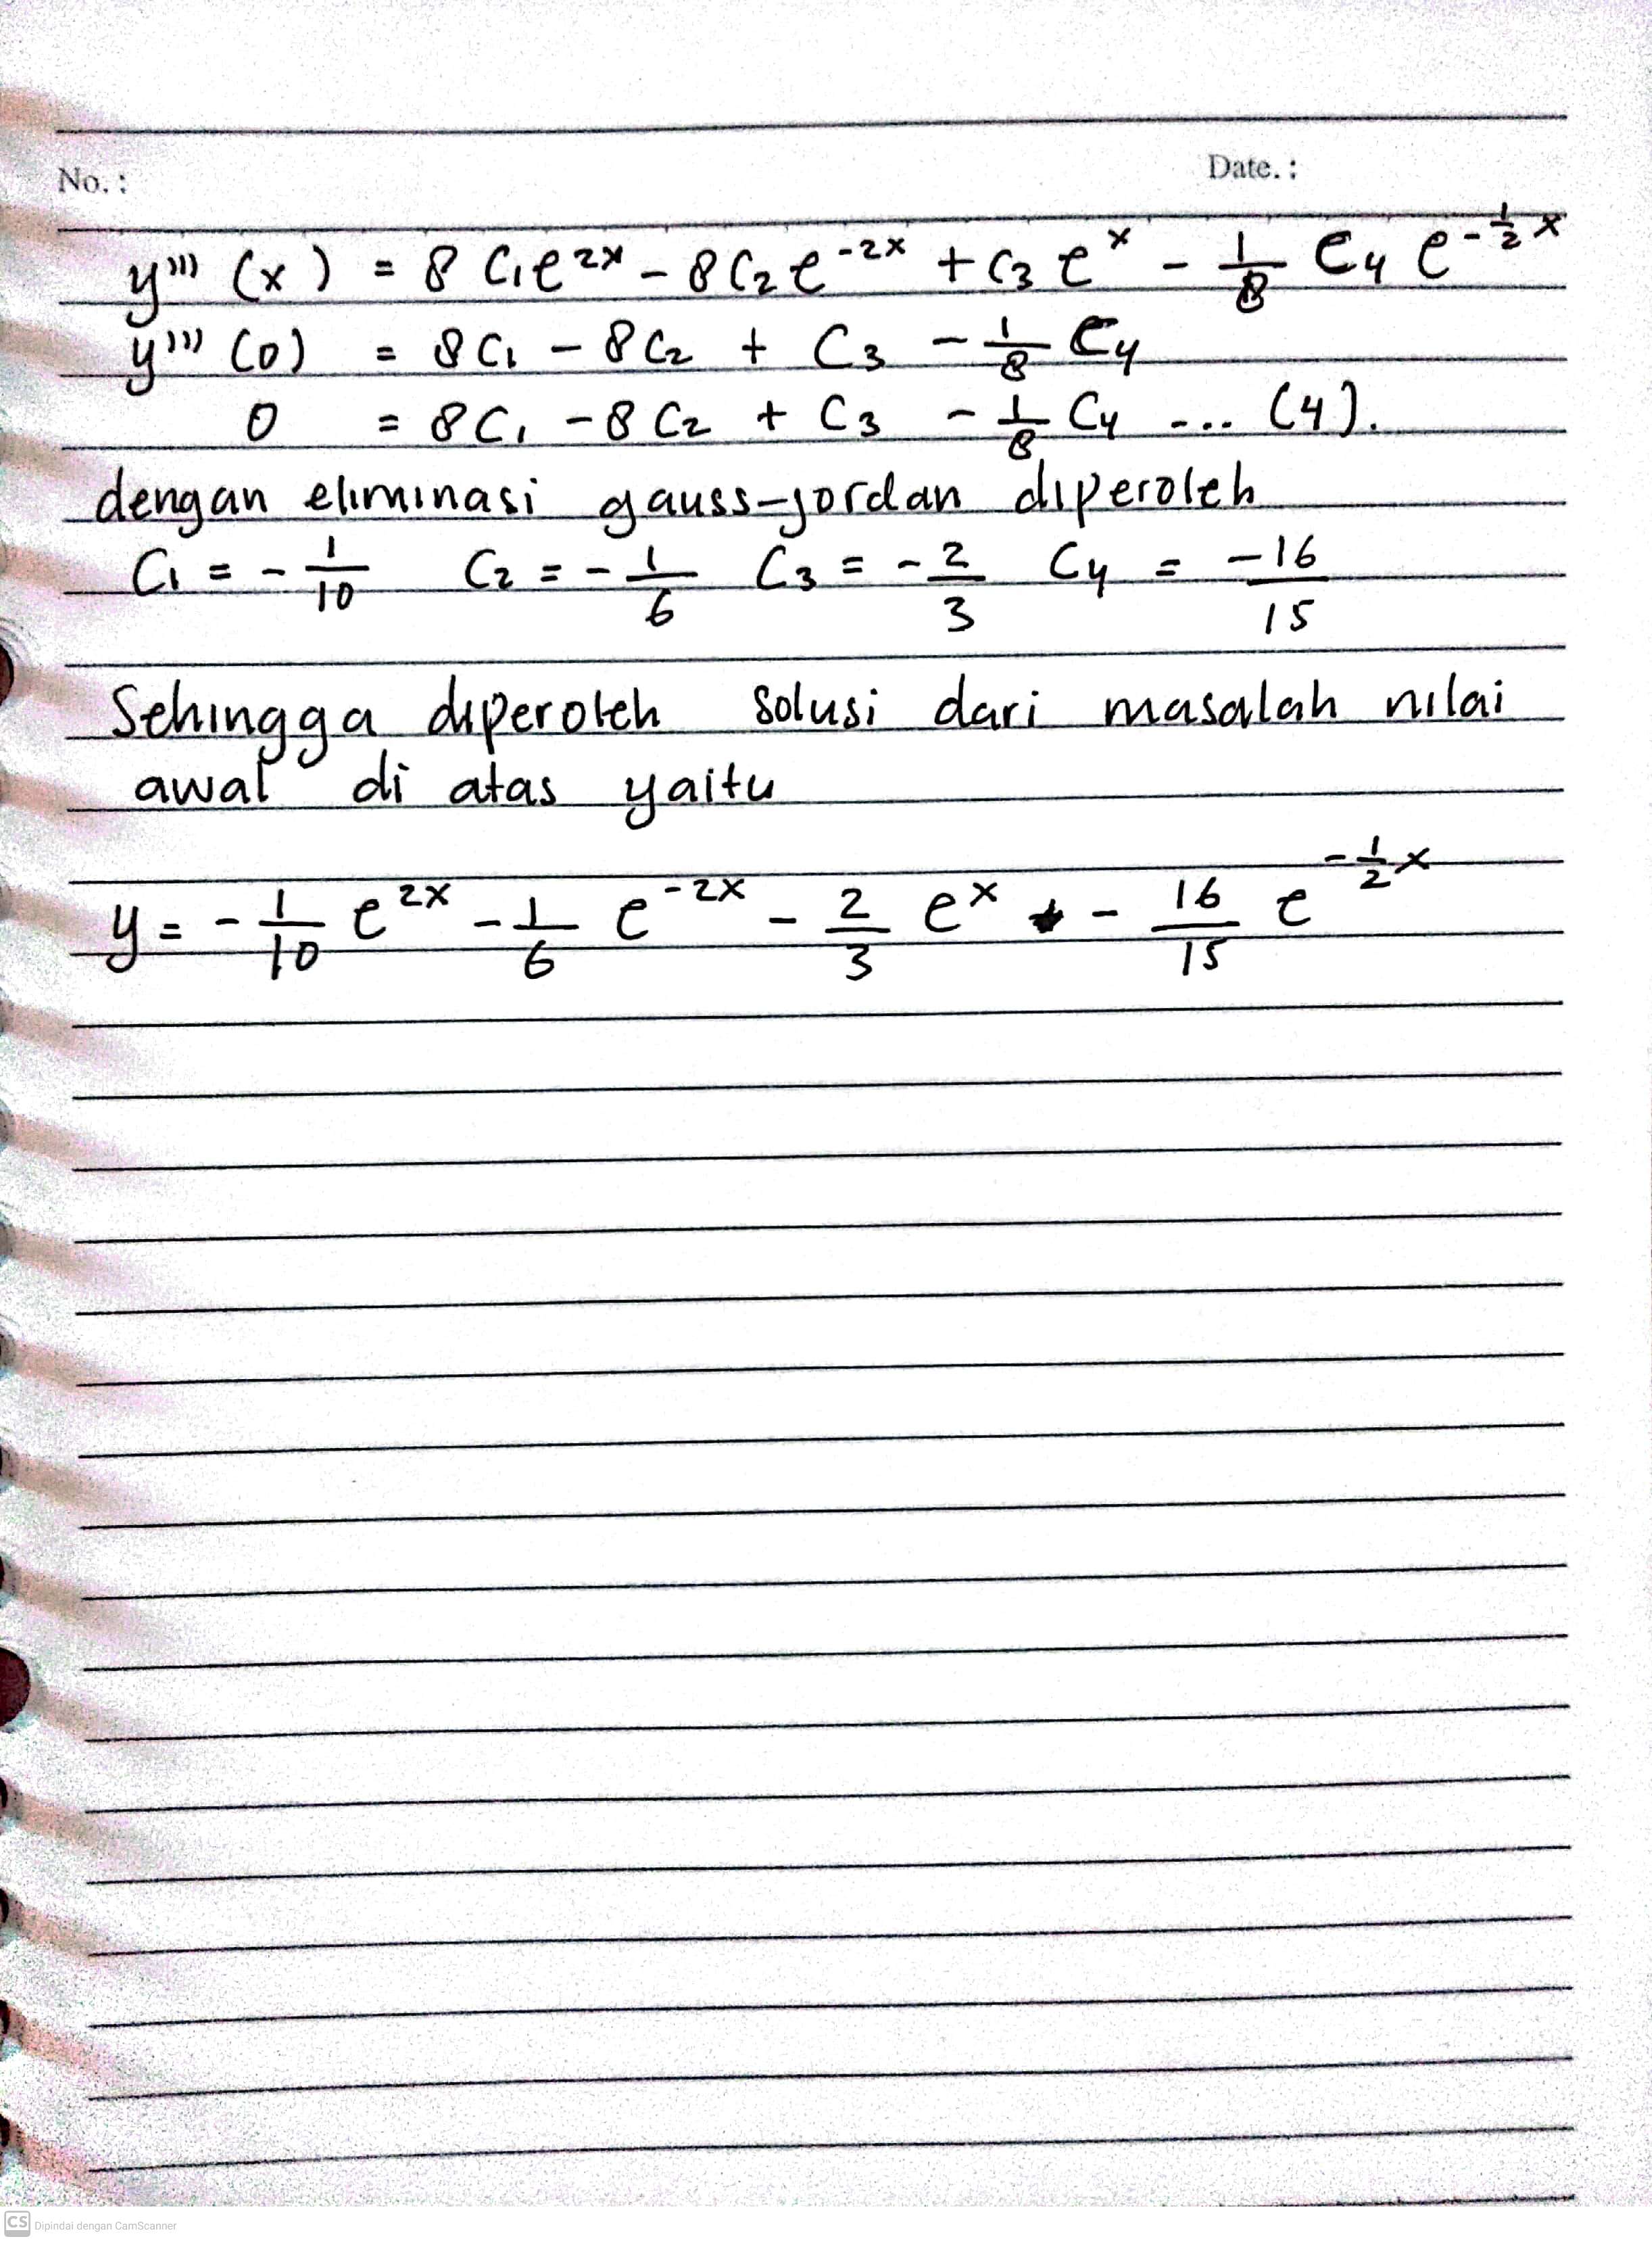 No. :
Date. :
y''' (x) = 8 C₁e^{2x} - 8C₂e^{-2x} + C₃ e^x - 1/8 C₄ e^{-1/2 x}
y''' (0) = 8C₁ - 8C₂ + C₃ - 1/8 C₄
0 = 8C₁ - 8C₂ + C₃ - 1/8 C₄ ... (4).
dengan eliminasi gauss-jordan diperoleh
C₁ = - 1/10 C₂ = - 1/6 C₃ = - 2/3 C₄ = -16/15
Sehingga diperoleh solusi dari masalah nilai
awal di atas yaitu
y = - 1/10 e^{2x} - 1/6 e^{-2x} - 2/3 e^x - 16/15 e^{-1/2 x}
CS Dipindai dengan CamScanner